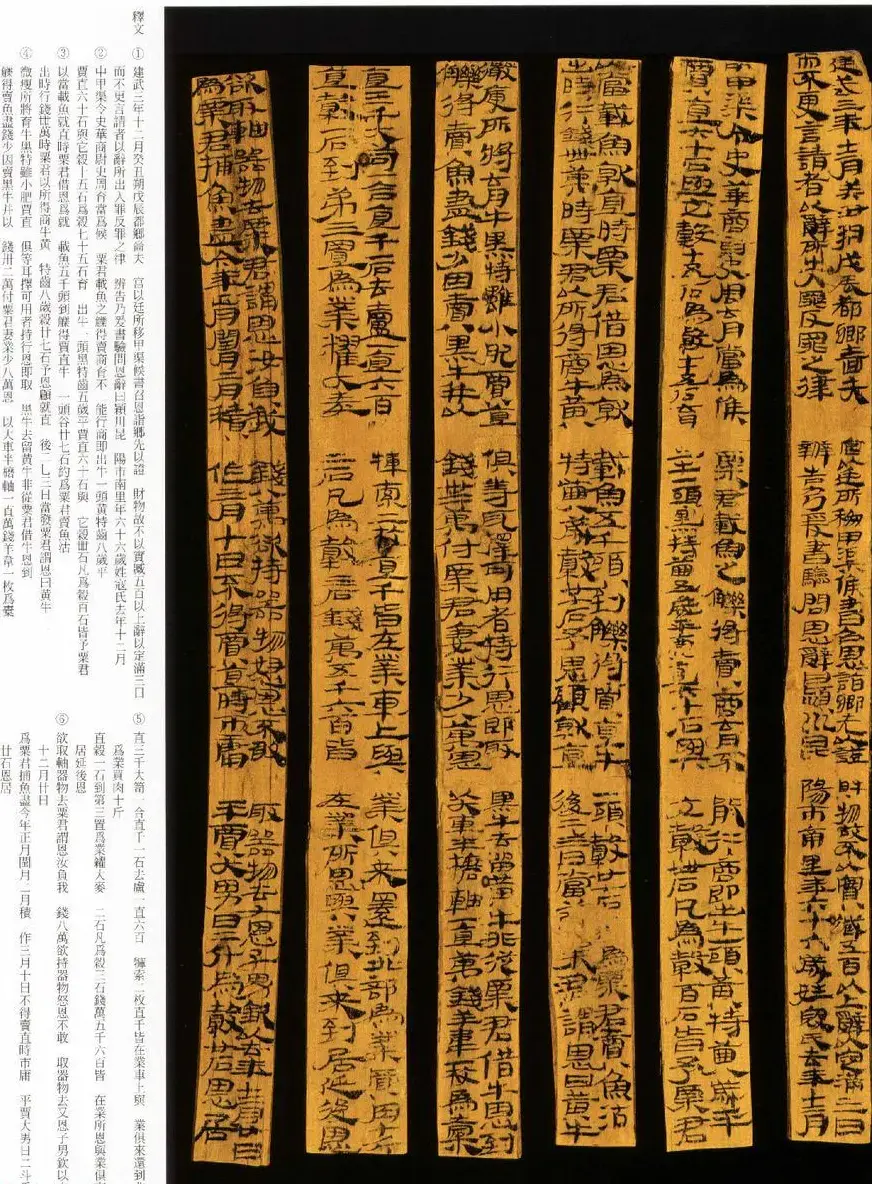 建武三年十二月癸丑朔戊辰都鄉嗇夫 宮以廷所移甲渠候書召恩詣鄉先以證 財物故不以實臧五百以上辭以定滿三日
而不更言請者以辭所出入罪反罪之律 辨告乃爰書驗問恩辭曰穎川昆 陽市南里年六十六歲姓寇氏去年十二月
中甲渠令史華商尉史周育當爲候 粟君載魚之觻得賣商育不 能行商即出牛一頭黃特齒八歲平
賈直六十石與它穀十五石爲穀七十五石育 出牛一頭黑特齒五歲平賈直六十石與 它穀卌石凡爲穀百石皆予粟君
以當載魚就直時粟君借恩爲就 載魚五千頭到觻得賈直牛 一頭穀廿七石 爲粟君賣魚沽
出時行錢卌萬時粟君以所得商牛黃 特齒八歲穀廿七石予恩顧就直 後二三日當發粟君謂恩曰黃牛
微庾所將育牛黑特雖小肥賈直 俱等耳擇可用者持行恩即取 黑牛去留黃牛非從粟君借牛恩到
觻得賣魚盡錢少因賣黑牛并以 錢卅二萬付粟君妻業少八萬恩 以大車半軸一直萬錢羊韋一枚爲橐
直三千大笥一合直千一石去盧一直六百 㢕索二枚直千皆在業車上與 業俱來還到北部爲業買肉十斤
直穀一石到弟三置爲業糴大麥 二石凡爲穀三石錢萬五千六百皆 在業所恩與業俱來到居延後恩
欲取軸器物去粟君謂恩汝負我 錢八萬欲持器物怒恩不敢 取器物去又恩子男欽以去年十二月廿日
爲粟君捕魚盡今年正月閏月二月積 作三月十日不得賈直時市庸 平賈大男日二斗爲穀廿石恩居
釋文
① 建武三年十二月癸丑朔戊辰都鄉嗇夫 宮以廷所移甲渠候書召恩詣鄉先以證 財物故不以實臧五百以上辭以定滿三日
而不更言請者以辭所出入罪反罪之律 辨告乃爰書驗問恩辭曰穎川昆 陽市南里年六十六歲姓寇氏去年十二月
② 中甲渠令史華商尉史周育當爲候 粟君載魚之觻得賣商育不 能行商即出牛一頭黃特齒八歲平
賈直六十石與它穀十五石爲穀七十五石育 出牛一頭黑特齒五歲平賈直六十石與 它穀卌石凡爲穀百石皆予粟君
③ 以當載魚就直時粟君借恩爲就 載魚五千頭到觻得賈直牛 一頭谷廿七石約爲粟君賣魚沽
出時行錢卌萬時粟君以所得商牛黃 特齒八歲穀廿七石予恩顧就直 後二三日當發粟君謂恩曰黃牛
④ 微瘦所將育牛黑特雖小肥賈直 俱等耳擇可用者持行恩即取 黑牛去留黃牛非從粟君借牛恩到
觻得賣魚盡錢少因賣黑牛并以 錢卅二萬付粟君妻業少八萬恩 以大車半軸一直萬錢羊韋一枚爲橐
⑤ 直三千大笥一合直千一石去盧一直六百 㢕索二枚直千皆在業車上與 業俱來還到北
爲業買肉十斤
直穀一石到第三置爲業糴大麥 二石凡爲穀三石錢萬五千六百皆 在業所恩與業俱來
居延後恩
⑥ 欲取軸器物去粟君謂恩汝負我 錢八萬欲持器物怒恩不敢 取器物去又恩子男欽以去
十二月廿日
爲粟君捕魚盡今年正月閏月二月積 作三月十日不得賣直時市庸 平賈大男日二斗爲
廿石恩居